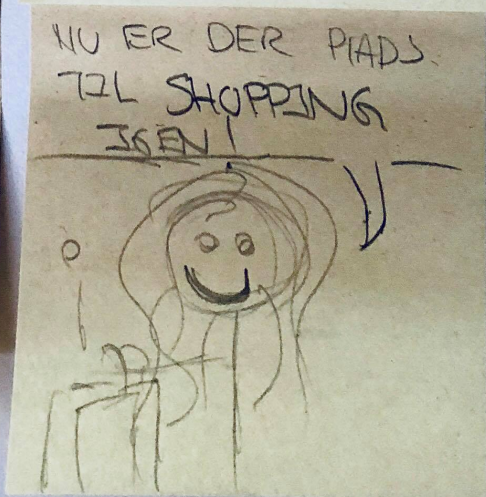 NU ER DER PLADS
TIL SHOPPING
IGEN!